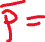 P̅ =